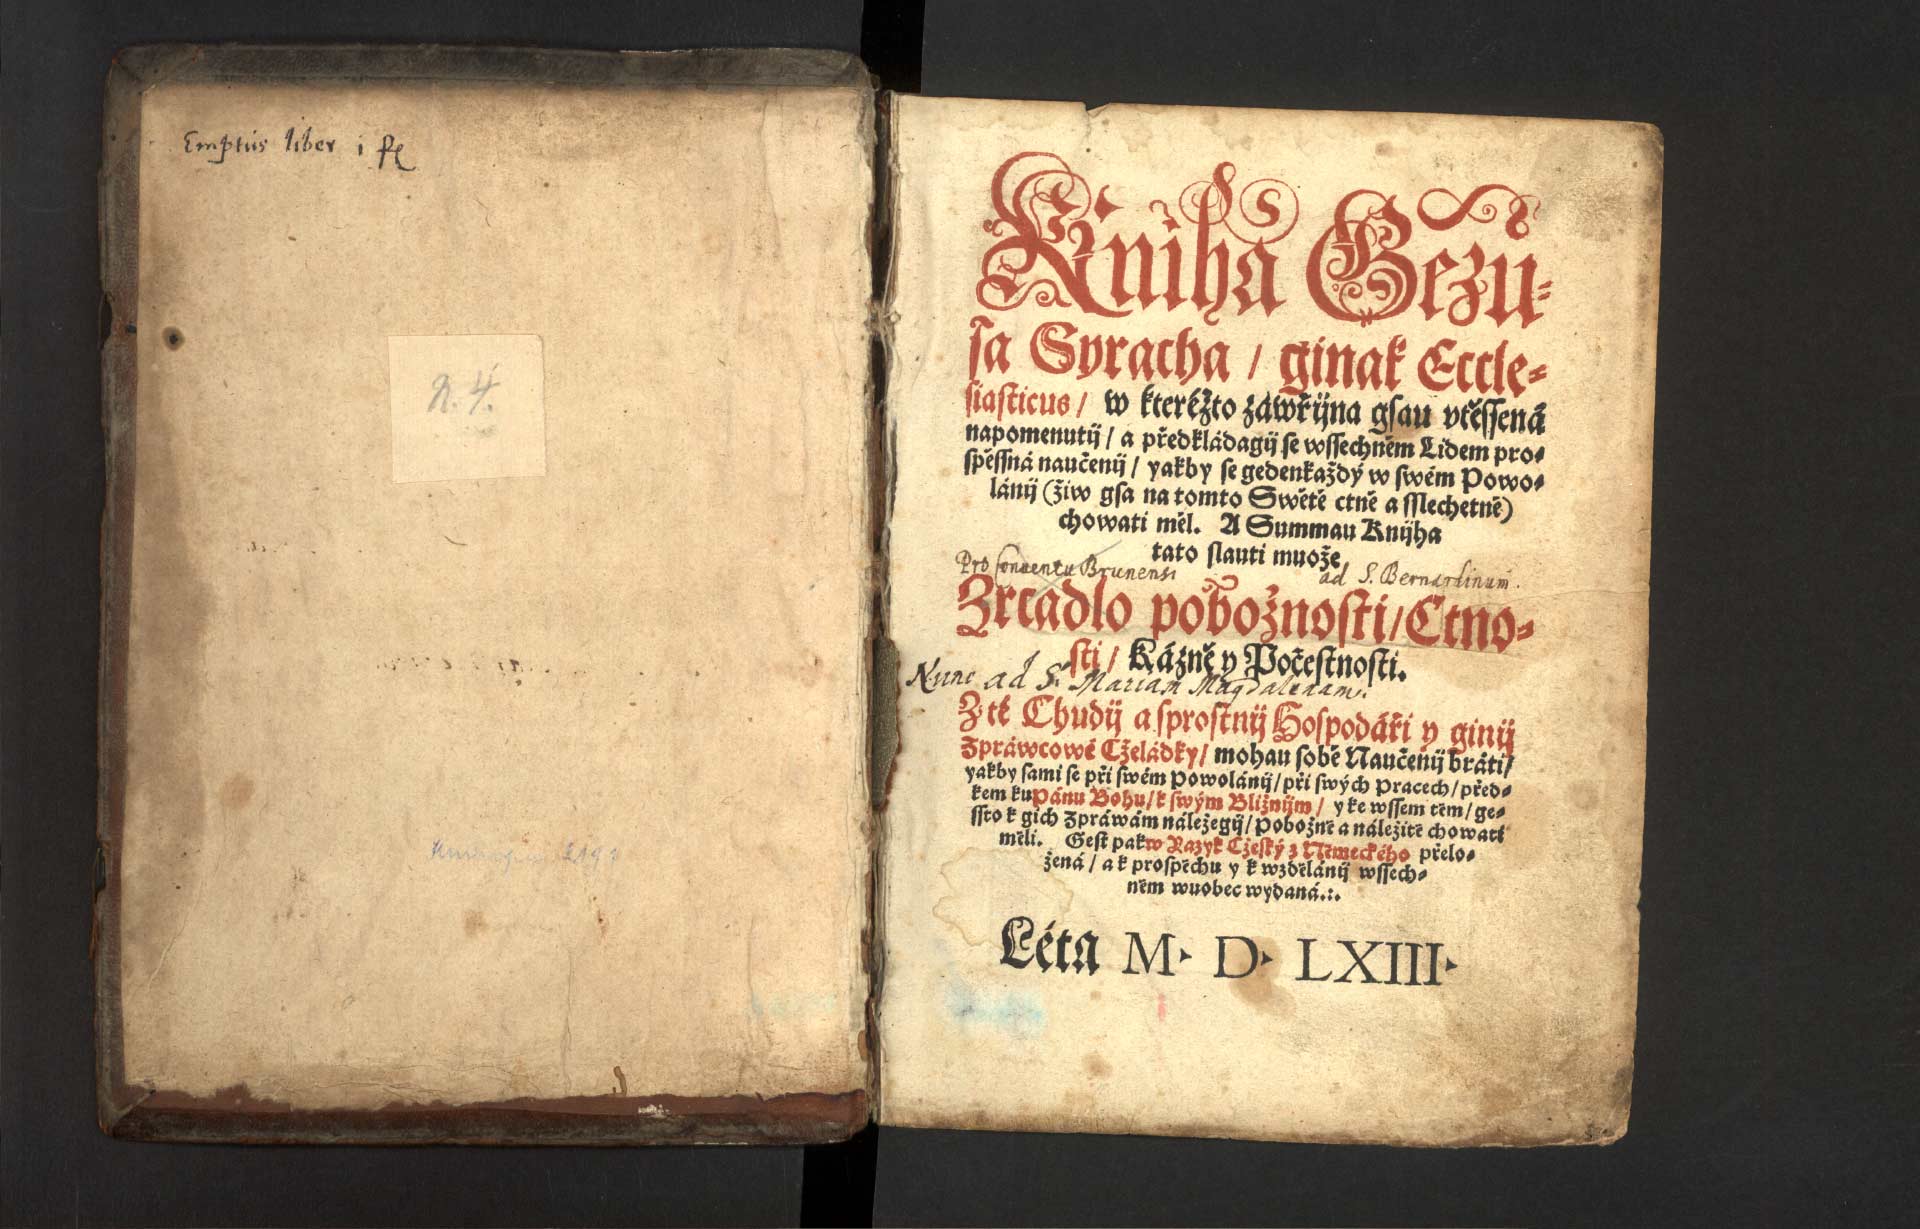 Emptus liber i
n. 4.
Kniha Gezu-
sa Syracha / ginak Eccle-
siasticus / w kteréžto záwřijna gsau vtěssená
napomenutij / a předkládagij se wssechněm Lidem pro-
spěssná naučenij / yakby se gedenkaždý w swém Powo-
lánij (žiw gsa na tomto Swětě ctně a sslechetně)
chowati měl. A Summau Knijha
tato slauti muože
Pro Conuentu Brunensi ad S. Bernardinum.
Zrcadlo pobožnosti / Ctno-
sti / Kázně y Počestnosti.
Nunc ad S. Mariam Magdalenam.
Z té Chudij a sprostnij Hospodáři y ginij
Zpráwcowé Cželádky / mohau sobě Naučenij bráti /
yakby sami se při swém Powolánij / při swých Pracech / před-
kem ku Pánu Bohu / k swým Bližnijm / y ke wssem těm / ge-
ssto k gich Zpráwám náležegij / Pobožně a náležitě chowati
měli. Gest pak w Jazyk Cžeský z Německého přelo-
žená / a k prospěchu y k wzdělánij wssech-
něm wuobec wydaná.:.
Léta M. D. LXIII.